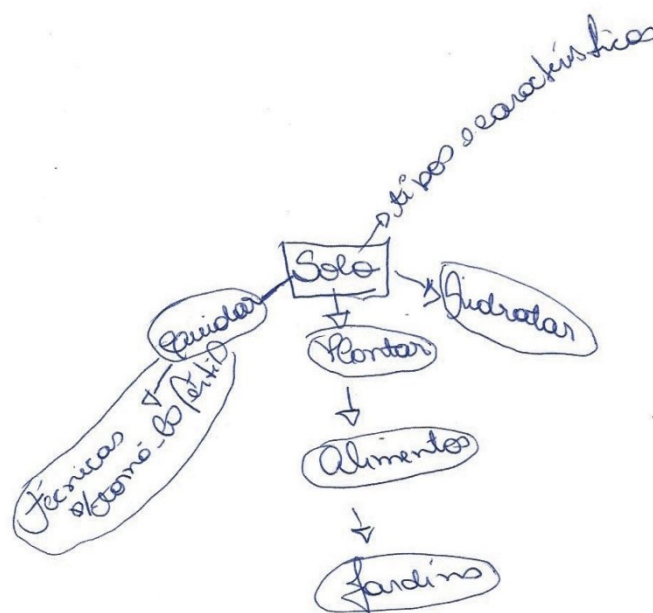 tipos e características
Solo
Hidratar
cuidar
Plantar
Técnicas
p/ torná-lo fértil
Alimentos
Jardins